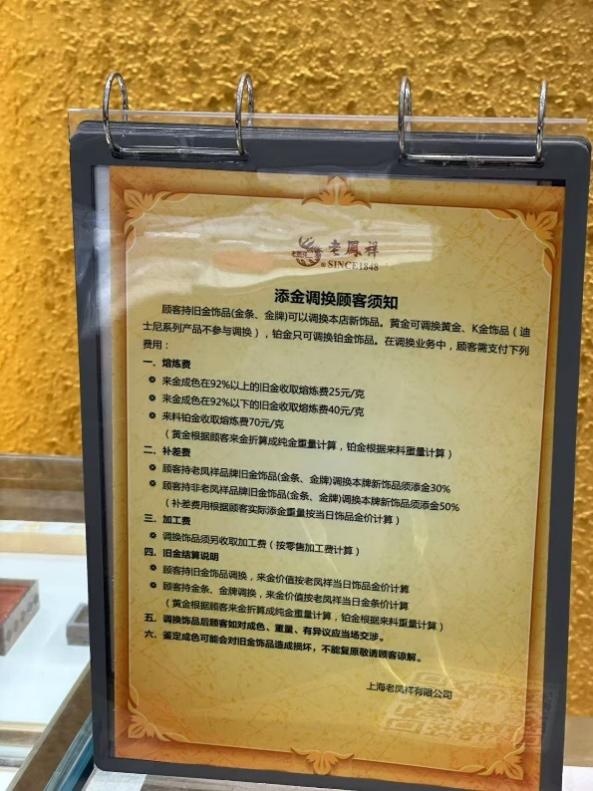 老鳳祥
SINCE1848
添金调换顾客须知
顾客持旧金饰品(金条、金牌)可以调换本店新饰品。黄金可调换黄金、K金饰品（迪
士尼系列产品不参与调换），铂金只可调换铂金饰品。在调换业务中，顾客需支付下列
费用：
一、熔炼费
来金成色在92%以上的旧金收取熔炼费25元/克
来金成色在92%以下的旧金收取熔炼费40元/克
来料铂金收取熔炼费70元/克
（黄金根据顾客来金折算成纯金重量计算，铂金根据来料重量计算）
二、补差费
顾客持老凤祥品牌旧金饰品(金条、金牌)调换本牌新饰品须添金30%
顾客持非老凤祥品牌旧金饰品(金条、金牌)调换本牌新饰品须添金50%
（补差费用根据顾客实际添金重量按当日饰品金价计算）
三、加工费
调换饰品须另收取加工费（按零售加工费计算）
四、旧金结算说明
顾客持旧金饰品调换，来金价值按老凤祥当日饰品金价计算
顾客持金条、金牌调换，来金价值按老凤祥当日金条价计算
（黄金根据顾客来金折算成纯金重量计算，铂金根据来料重量计算）
五、调换饰品后顾客如对成色、重量、有异议应当场交涉。
六、鉴定成色可能会对旧金饰品造成损坏，不能复原敬请顾客谅解。
上海老凤祥有限公司